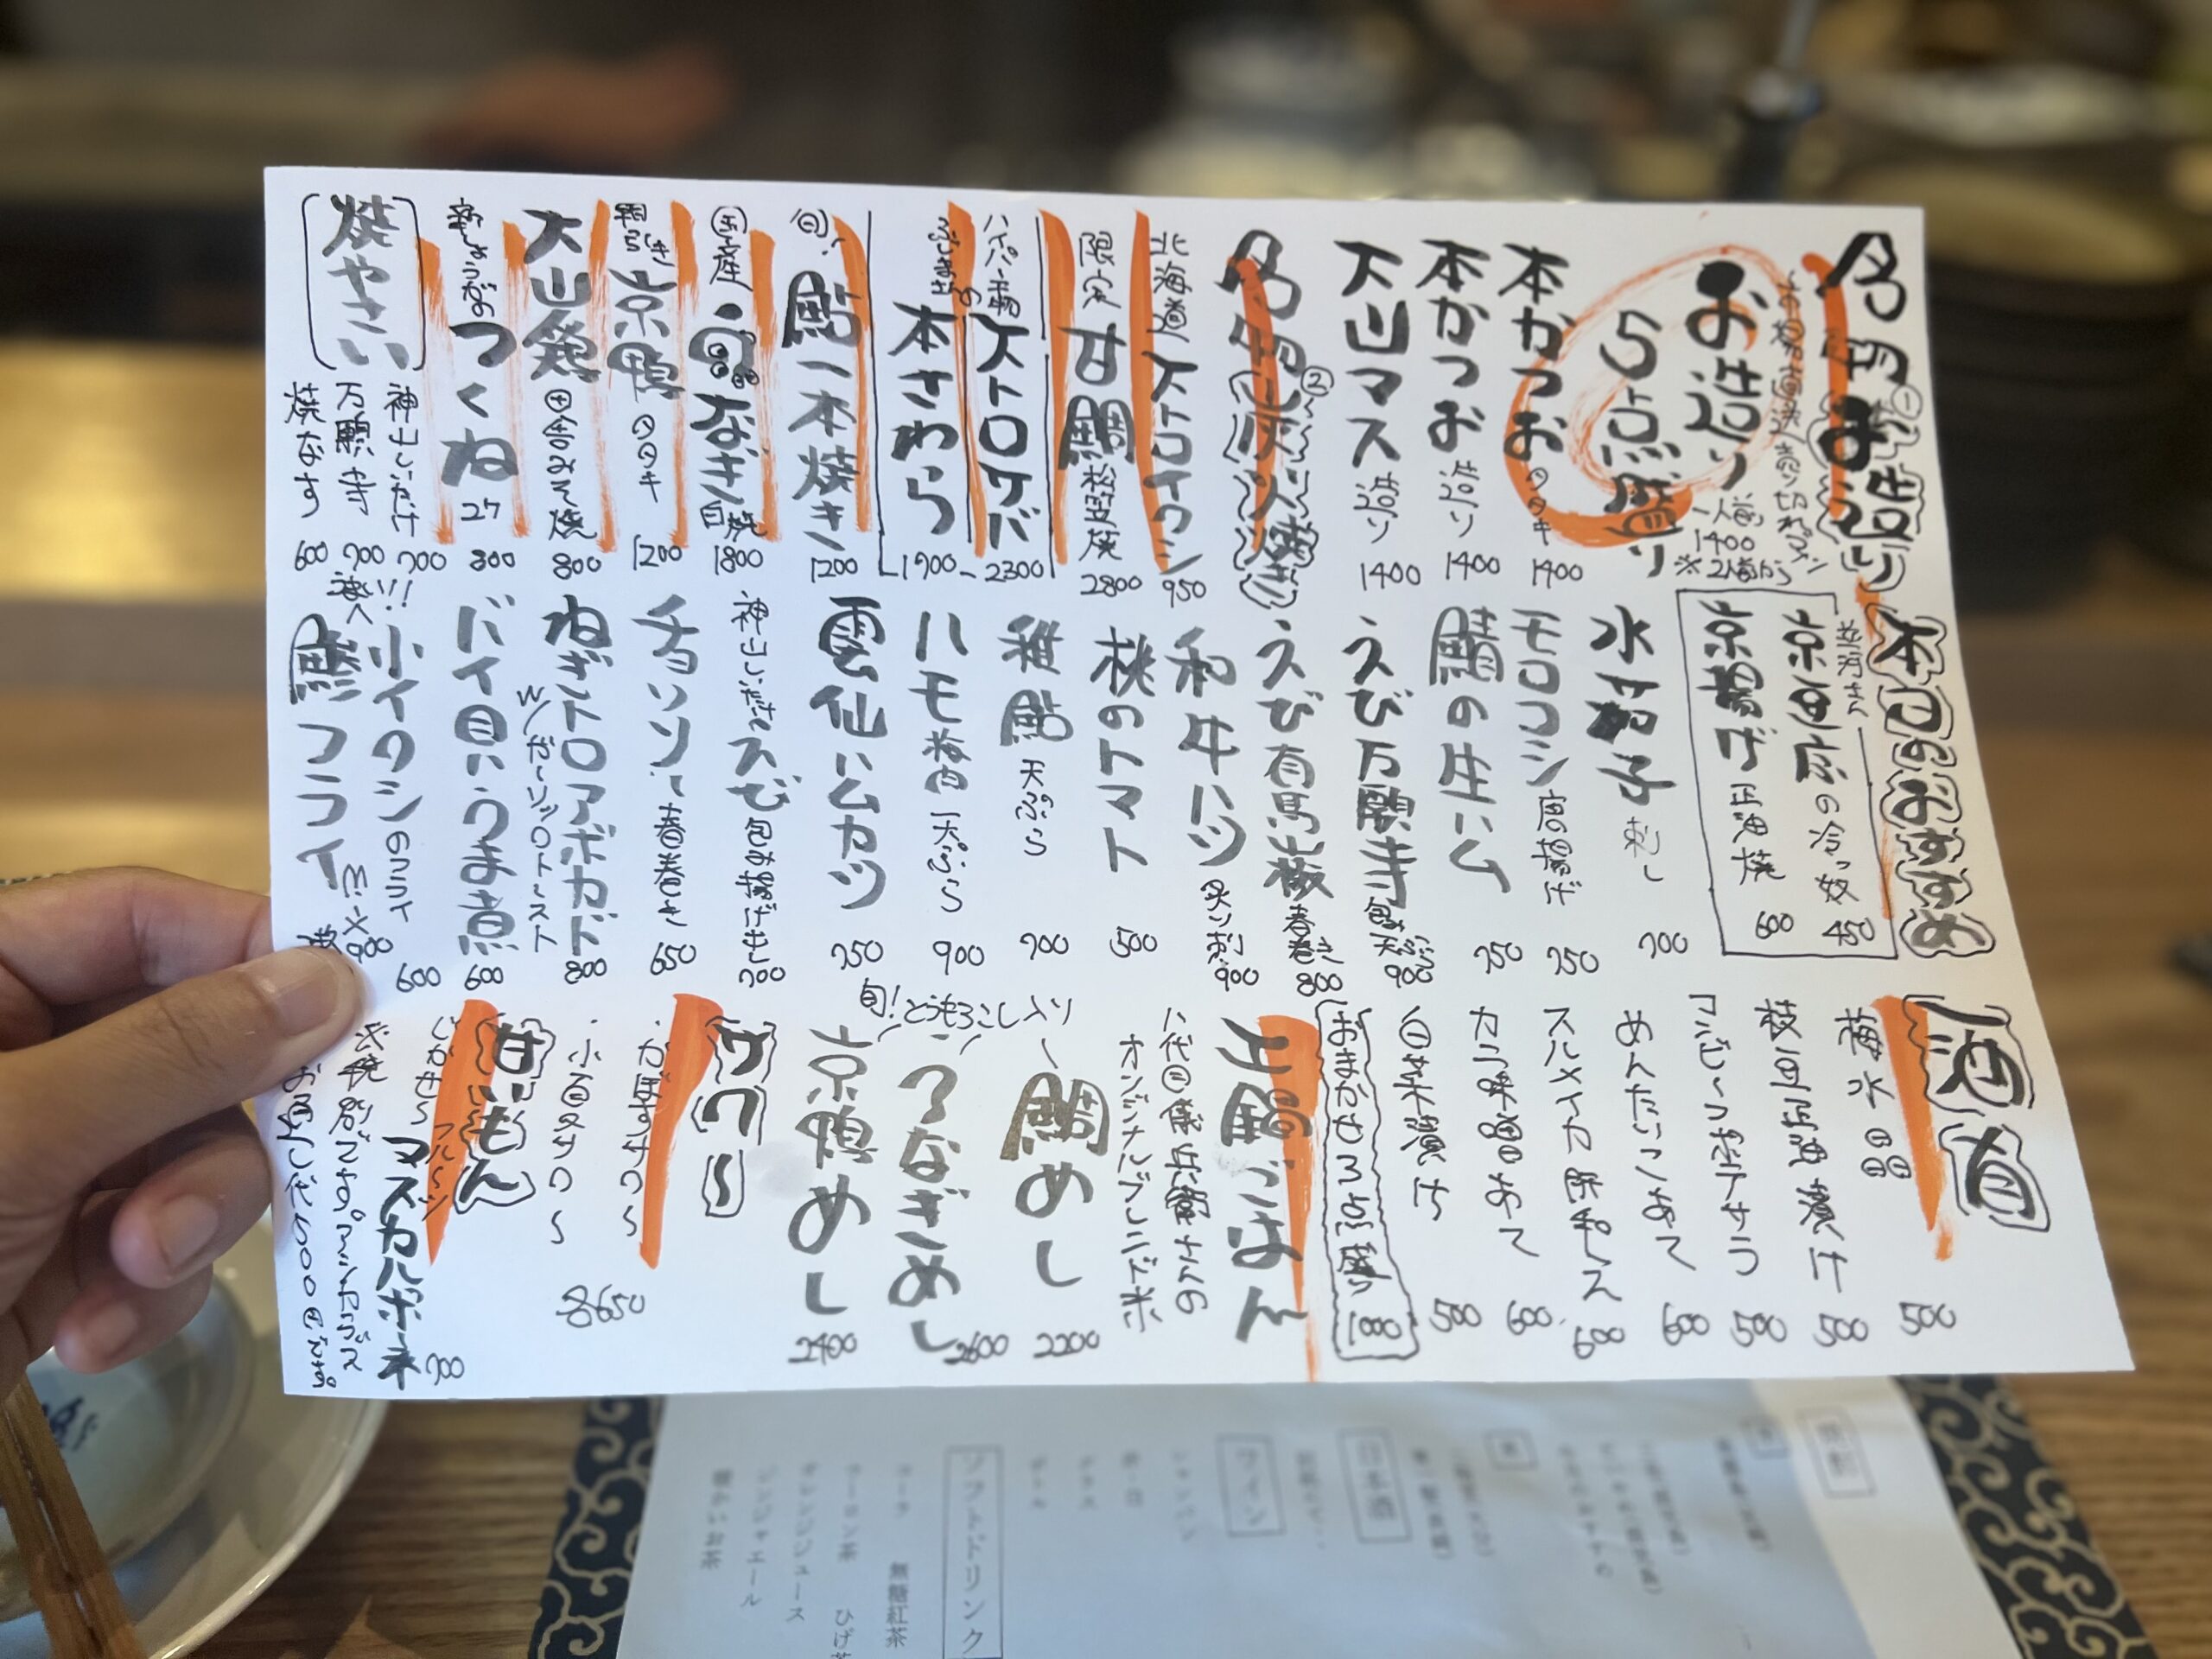 名物①お造り
お造り
5点盛り
一人前
1400
※2人前から
本かつお タタキ 1400
本かつお 造り 1400
大山マス 造り 1400
名物②炭火焼き
北海道 大トロイワシ 950
限定 甘鯛 松笠焼 2800
大トロサバ 2300
本さわら 1900
鮎一本焼き 1200
国産 うなぎ 白焼 1800
京鴨 タタキ 1200
大山鶏 田舎みそ焼 800
新しょうがのつくね 2ケ 800
焼やさい
神山しいたけ 700
万願寺 700
焼なす 600
本日のおすすめ
京豆腐の冷っ奴 450
京揚げ 正油焼 600
水茄子 刺し 700
モロコシ 唐揚げ 750
鯖の生ハム 750
えび万願寺 包み天ぷら 900
えび有馬山椒 春巻き 800
和牛ハツ 炙り刺 900
桃のトマト 500
稚鮎 天ぷら 700
ハモ梅肉 天ぷら 900
雲仙ハムカツ 750
神山しいたけのえび包み揚げ出し 700
チョリソー 春巻き 650
ねぎトロアボカド 800
w/ガーリックトースト
バイ貝のうま煮 600
小イワシのフライ 600
フライ Mix 900
酒肴
梅水晶 500
枝豆正油漬け 500
コンビーフポテサラ 500
めんたいこあて 600
スルメイカ 酢和え 600
カニ味噌あて 600
白菜漬け 500
おまかせ3点盛り
土鍋ごはん
八代目儀兵衛さんの
オリジナルブレンド米
旬!とうもろこし入り
鯛めし 2200
うなぎめし 2600
京鴨めし 2400
サワー
・かぼすサワー
・小夏サワー
各650
甘いもん
フルーツ
マスカルポーネ 700
ソフトドリンク
コーラ
ウーロン茶
オレンジジュース
ジンジャエール
温かいお茶
無糖紅茶
日本酒
ワイン
シャンパン
赤・白
グラス
ボトル